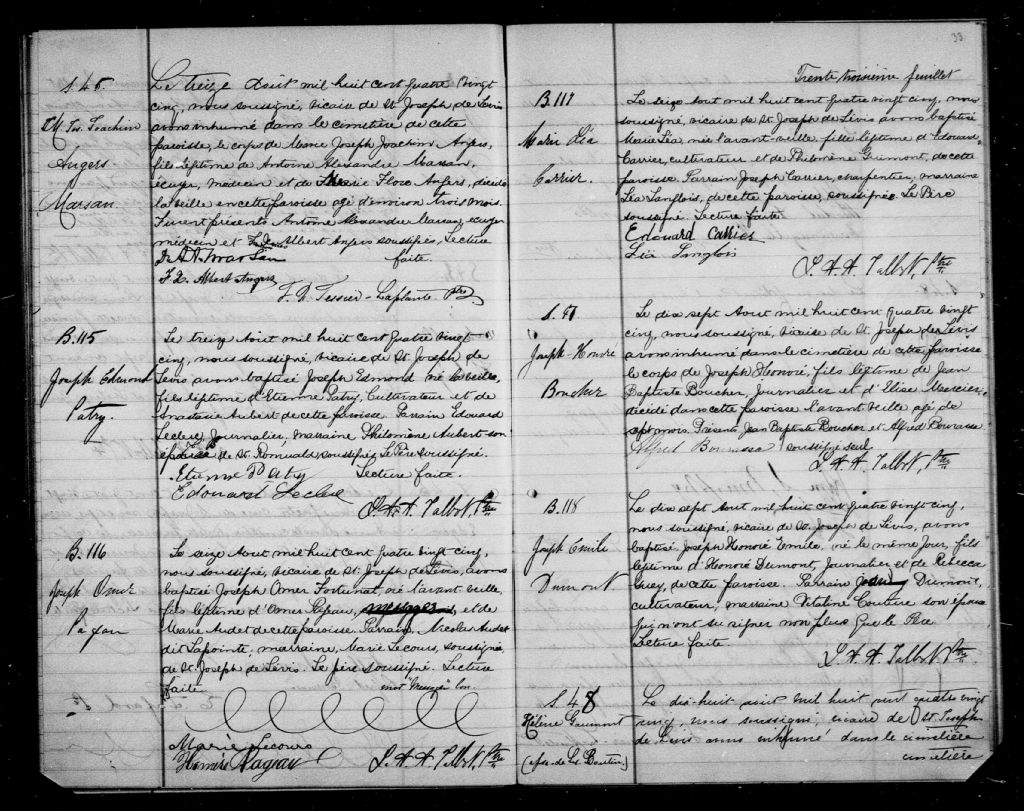 S. 46.
M. Js. Joachim
Angers
Marsan.
Le treize Août mil huit cent quatre vingt
cinq, nous soussigné, vicaire de St Joseph de Levis
avons inhumé dans le cimetière de cette
paroisse, le corps de Marie Joseph Joachim Angers,
fils légitime de Antoine Alexandre Marsan,
écuyer, médecin et de Marie Flore Angers, décédé
la veille en cette paroisse agé d'environ trois mois.
Furent présents Antoine Alexandre Marsan, ecuyer
médecin et Albert Angers soussignés, Lecture
faite.
Dr A A Marsan
F. X. Albert Angers
F. D. Tessier-Laplante Ptre
B. 115
Joseph Edmond
Patry.
Le treize Aout mil huit cent quatre vingt
cinq, nous soussigné, vicaire de St. Joseph de
Levis avons baptisé Joseph Edmond né la veille,
fils légitime d'Etienne Patry, Cultivateur et de
Anastasie Aubert de cette paroisse. Parrain Edouard
Leclerc, Journalier, marraine Philomène Aubert son
épouse de St. Romuald soussignés Le Père soussigné.
Lecture faite.
Etienne Patry
Edouard Leclerc
L. A. A. Talbot, Ptre
B. 116
Joseph Omer
Pageau
Le seize Aout mil huit cent quatre vingt cinq,
nous soussigné, vicaire de St. Joseph de Lévis, avons
baptisé Joseph Omer Fortunat, né l'avant veille,
fils légitime d'Omer Pageau, et de
Marie Audet de cette paroisse. Parrain, Nicolas Audet
dit Lapointe, marraine, Marie Lecours, soussignée
de St. Joseph de Levis. Le père soussigné. Lecture
faite.
mot "menager" bon
Marie Lecours
Homère Pageau
L. A. A. Talbot, Ptre
33
Trente troisieme feuillet
B. 117
Marie Léa
Carrier.
Le seize Aout mil huit cent quatre vingt cinq, nous
soussigné, vicaire de St Joseph de Lévis avons baptisé
Marie Léa, née l'avant-veille, fille légitime d'Edouard
Carrier, cultivateur et de Philomène Gumont, de cette
paroisse. Parrain Joseph Carrier, charpentier, marraine
Léa Langlois, de cette paroisse, soussignée. Le Père
soussigné. Lecture faite
Edouard Carrier
Léa Langlois
L. A. A. Talbot, Ptre
S. 47
Joseph-Honoré
Boucher
Le dix sept Aout mil huit cent quatre vingt
cinq, nous soussigné, vicaire de St Joseph de Levis
avons inhumé dans le cimetière de cette paroisse
le corps de Joseph Honoré, fils légitime de Jean
Baptiste Boucher, Journalier et d'Elise Mercier,
décédé dans cette paroisse l'avant veille agé de
sept mois. Présents Jean Baptiste Boucher et Alfred Bourassa
soussigné seul
Alfred Bourassa
L. A. A. Talbot, Ptre
B. 118
Joseph Emile
Dumont
Le dix sept Aout mil huit cent quatre vingt cinq,
nous soussigné, vicaire de St. Joseph de Levis, avons
baptisé Joseph Honoré Emile, né le même jour, fils
légitime d'Honoré Dumont, Journalier et de Rebecca
Guay, de cette paroisse. Parrain Jean Dumont
cultivateur, marraine Vitaline Couture son épouse
qui n'ont su signer non plus que le Père
Lecture faite.
L. A. A. Talbot, Ptre
S. 48
Hélène Gaumont
(épse. de Ls. Boutin)
Le dix-huit août mil huit cent quatre vingt
cinq, nous soussigné, vicaire de St. Joseph
de Levis avons inhumé dans le cimetière
cimetière